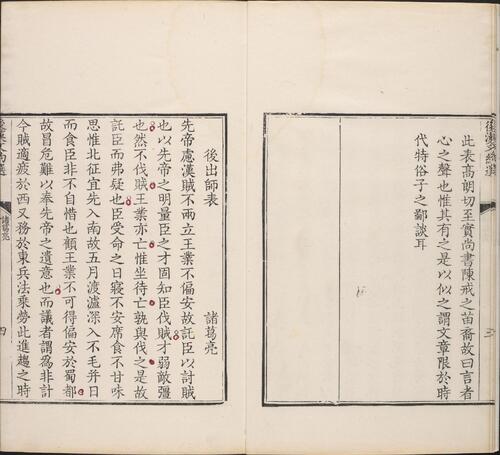 此表高朗切至實尚書陳戒之苗裔故曰言者
心之聲也惟其有之是以似之謂文章限於時
代特俗子之鄙談耳
後出師表
諸葛亮
先帝慮漢賊不兩立王業不偏安故託臣以討賊
也以先帝之明量臣之才固知臣伐賊才弱敵彊
也然不伐賊王業亦亡惟坐待亡孰與伐之是故
託臣而弗疑也臣受命之日寢不安席食不甘味
思惟北征宜先入南故五月渡瀘深入不毛并日
而食臣非不自惜也顧王業不可得偏安於蜀都
故冒危難以奉先帝之遺意也而議者謂爲非計
今賊適疲於西又務於東兵法乘勞此進趨之時
諸葛亮
四